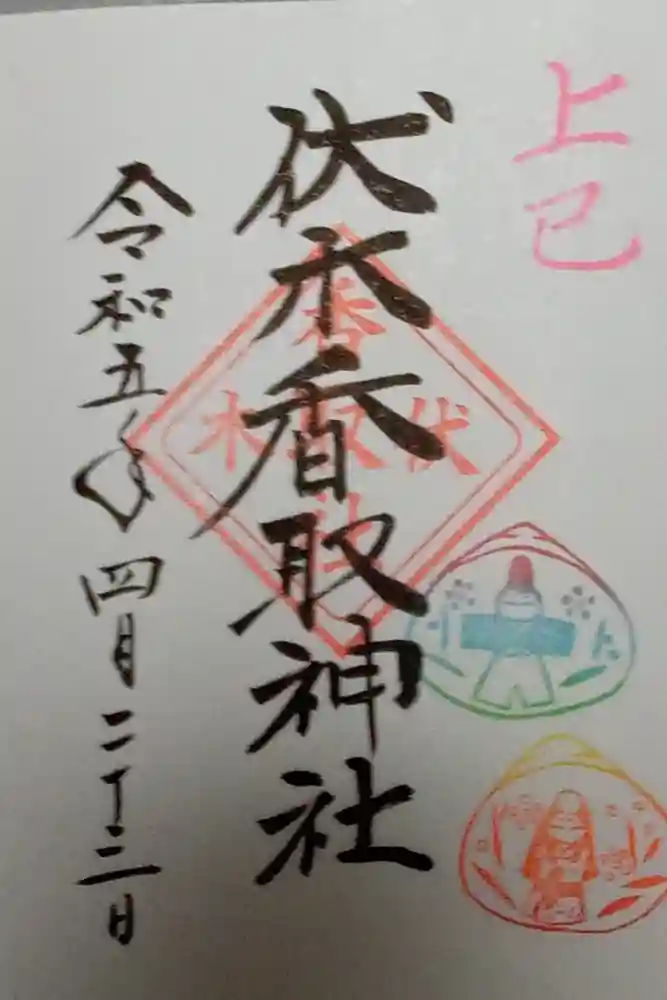 上巳
伏木香取神社
令和五年四月二十三日
香
木取伏